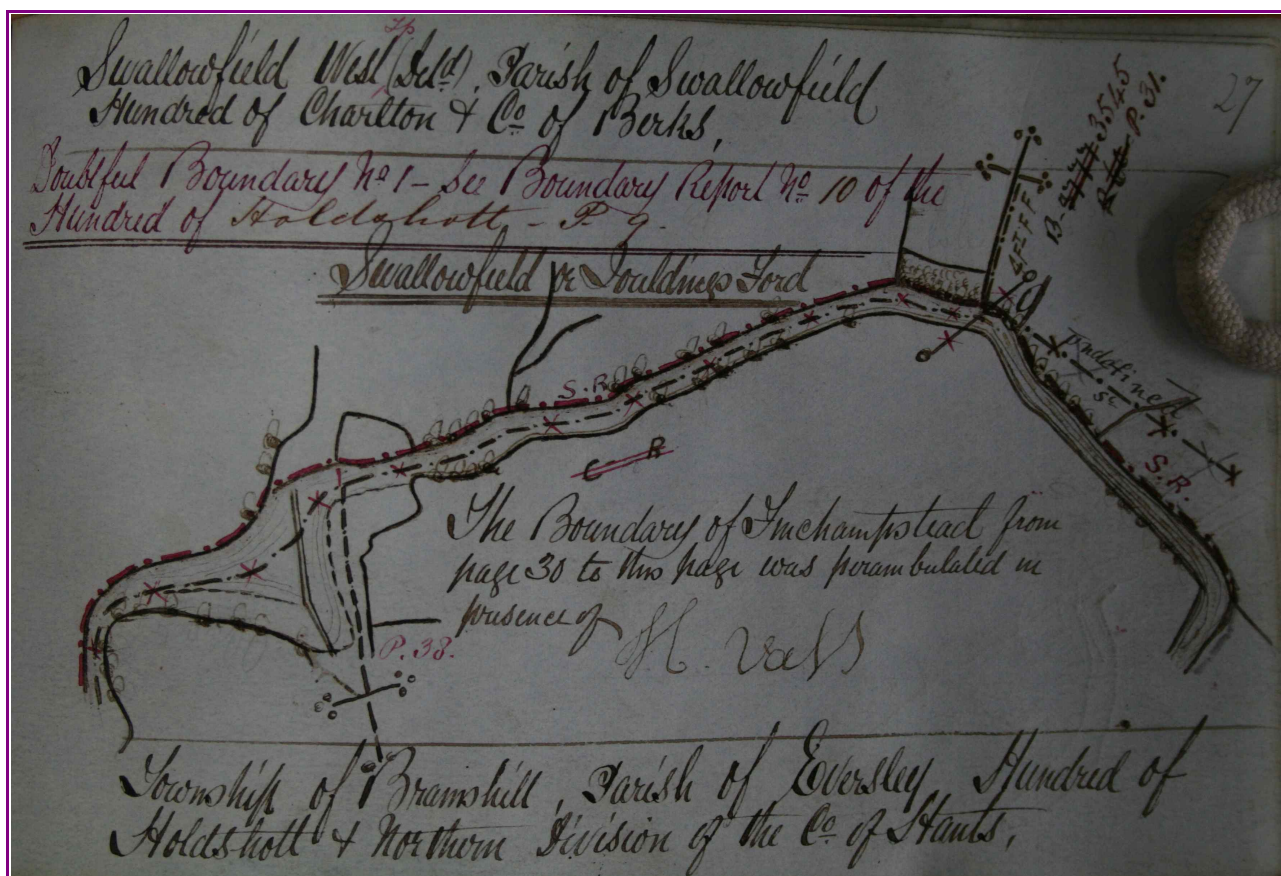 27
Tp
Swallowfield West (Detd), Parish of Swallowfield
Hundred of Charlton & Co of Berks,
Doubtful Boundary No 1 - See Boundary Report No 10 of the
Hundred of Holdshott - P. 9.
Swallowfield or Fouldings Ford
B- 3545
P. 31.
4 Ft F F
Undefined
S.R.
S.R.
C R
The Boundary of Finchampstead from
page 30 to this page was perambulated in
presence of
P. 38.
Township of Bramshill, Parish of Eversley, Hundred of
Holdshott & Northern Division of the Co of Hants,